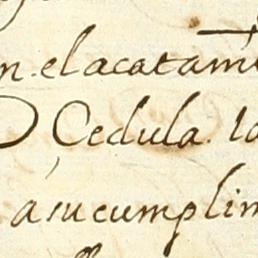 n. el acatam
Cedula. la
a su cumplim